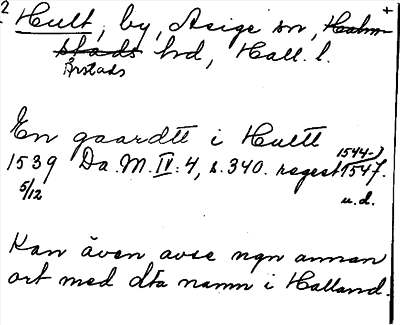 2
Hult, by, Asige sn, Halm-
stads hrd, Hall. l.
Årstads
+
En gaardtt i Hultt
1539 Da. M. IV: 4, s. 340. regest 1547.
1544-)
5/12
u.d.
Kan även avse ngn annan
ort med dta namn i Halland.